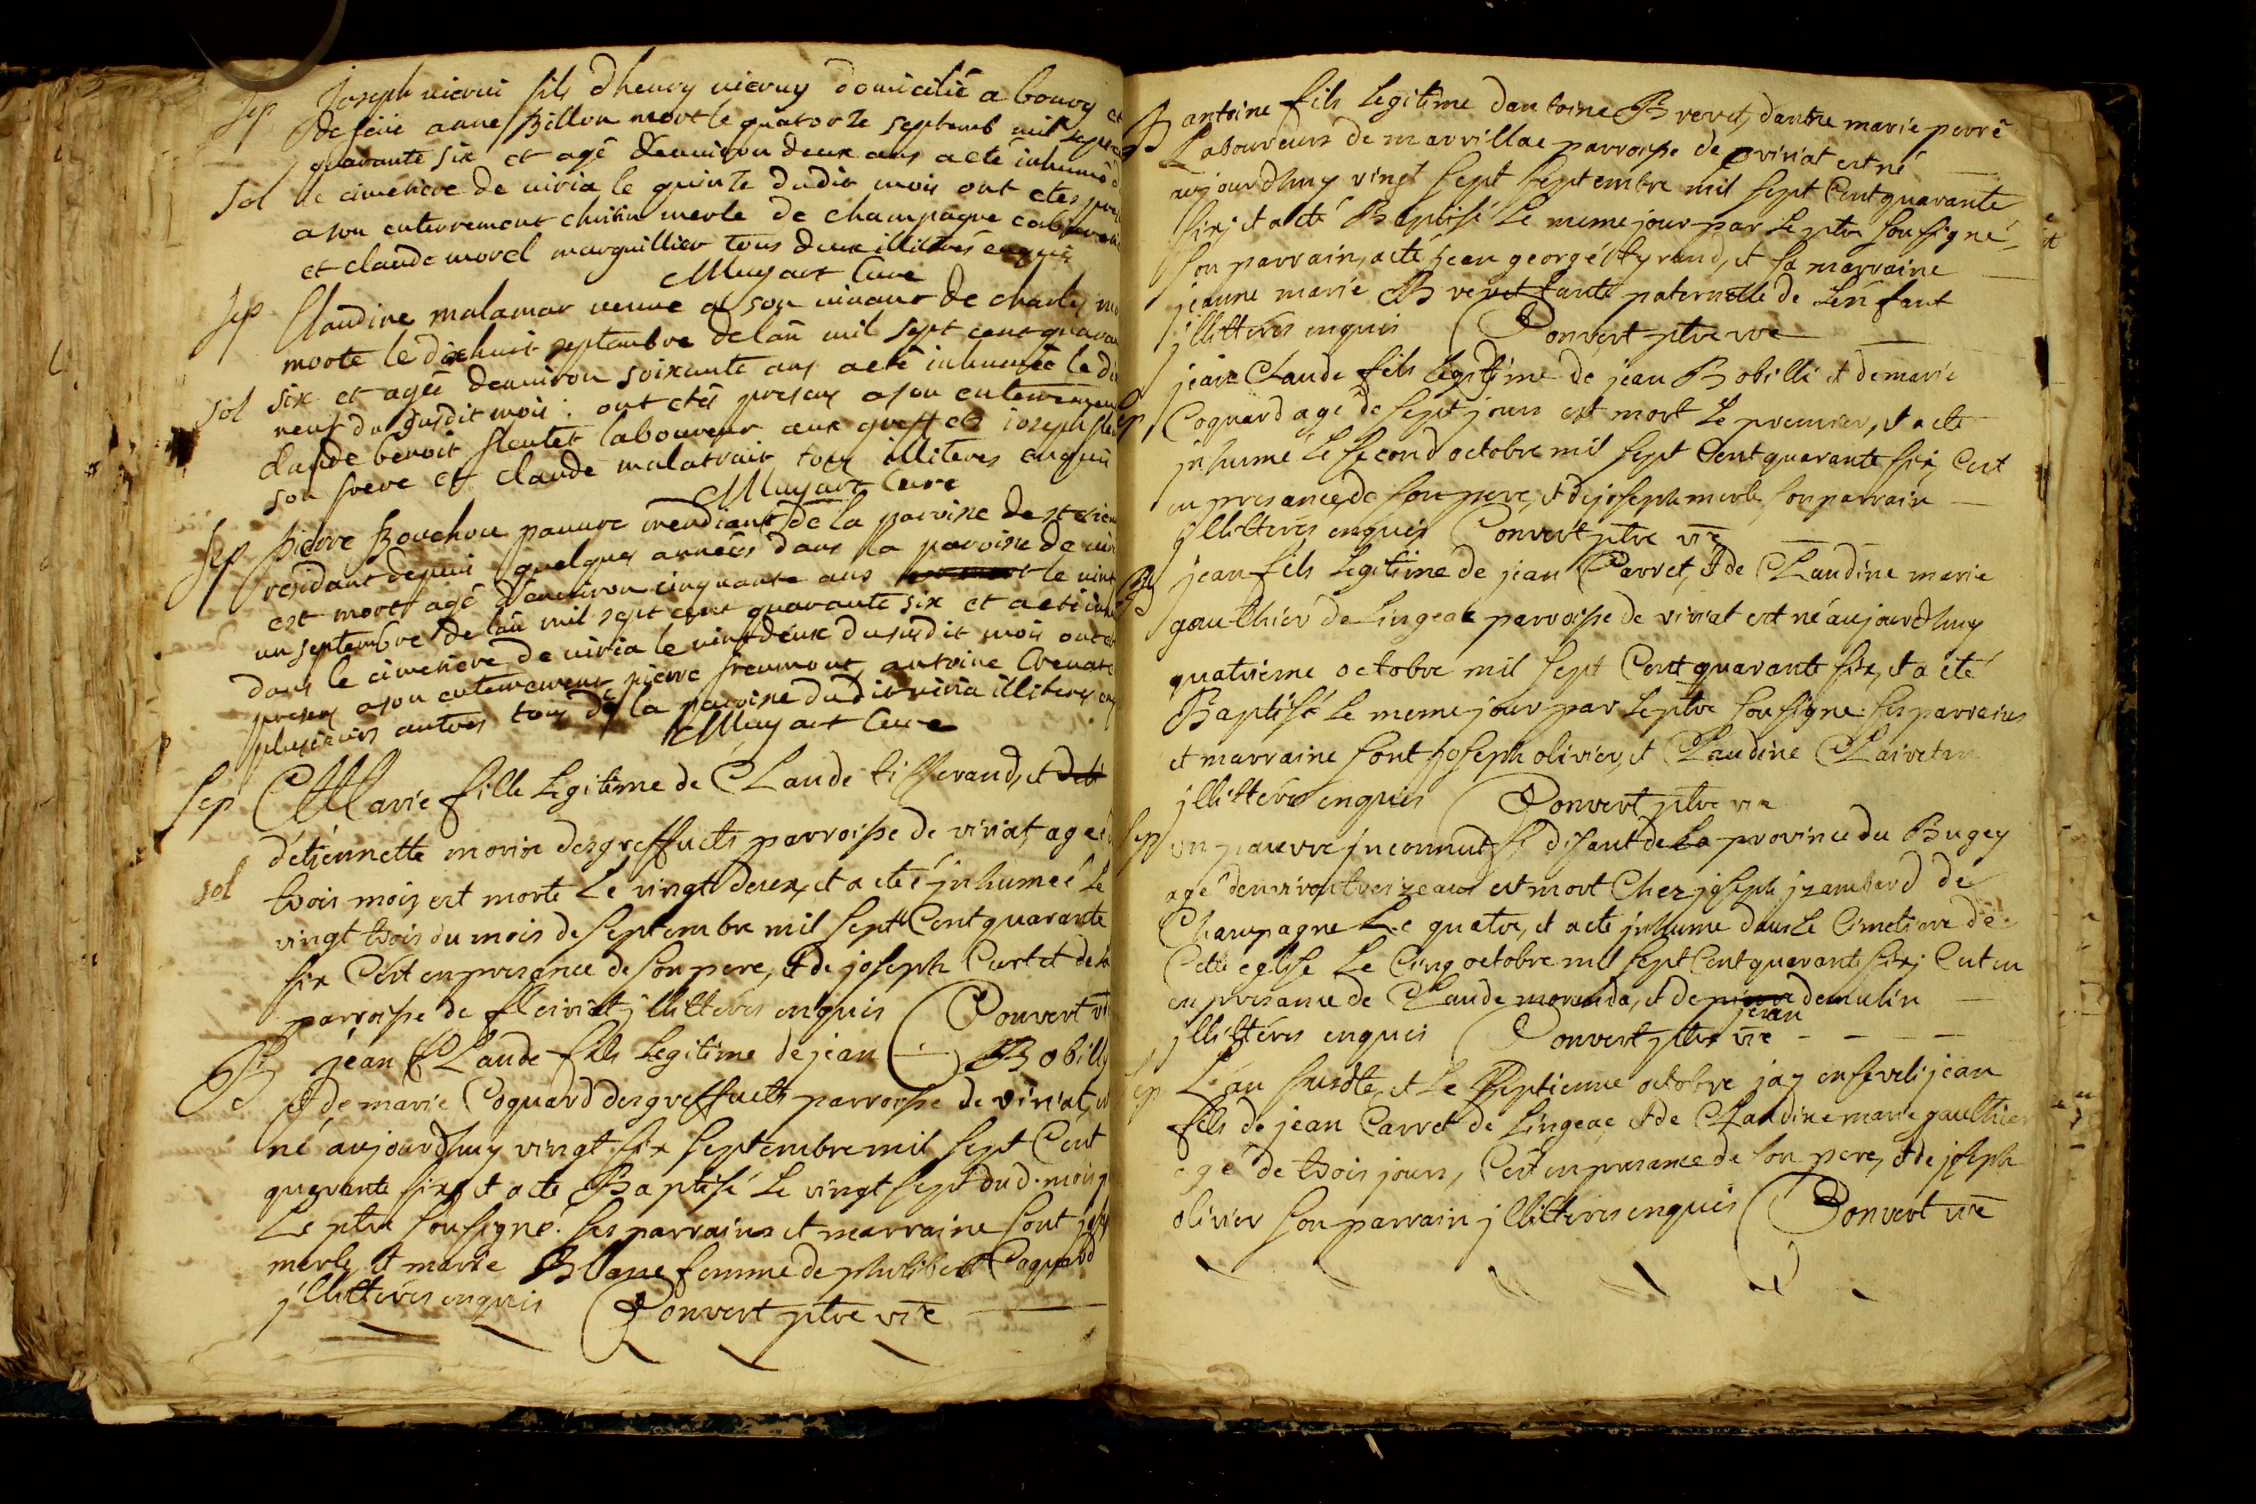 Sep Joseph vierni fils dhenry vierny domicilié a bourg et
de feüe anne Billon mort le quatorze septemb mil sept
quarante six et agé denviron deux ans a eté inhumé d
sol le cimetiere de viria le quinze dudit mois ont etes pres
a son enterrement merle de champagne
et claude morel marguillier tous deux illitérés enquis
Muyart Curé
Sep Claudine malamar veuve a son vivant de charle
morte le dixhuit septembre de lan mil sept cent quaran
sol six et agée denviron soixante ans a eté inhumée le dix
neuf du susdit mois ont etés presens a son enterrement
claude benoit laboureur aux greff et joseph
son frere et claude tous illiteres enquis
Muyart Curé
Sep pierre Bouchou pauvre mendiant de la paroisse de st
residant depuis quelques années dans la paroisse de vir
est mort agé denviron cinquante ans le vint
un septembre de lan mil sept cent quarante six et a eté inh
dans le cimetiere de viria le vint deux du susdit mois ont et
presens a son enterrement pierre antoine
plusieurs autres tous de la paroisse dudit viria illiteres enq
Muyart Curé
Sep Marie fille Legitime de Claude tisserand, et
d'étiennette morin des greffets parroisse de viriat, ageé
sol trois mois est morte Le vingt deux, et a eteé jnhumeé Le
vingt trois du mois de septembre mil sept Cent quarante
six C'est en presence de son pere, et de joseph Curtet de la
parroisse de fleiriat jllitterés enquis Convert vre
B jean Claude fils Legitime de jean Bobilly
et de marie Coquard des greffets parroisse de viriat, est
né aujourdhuy vingt six septembre mil sept Cent
quarante six, et a eté Baptisé Le vingt sept dud. mois p
Le ptre soussigné. ses parrains et marraine sont jos
merle, et marie Blanc femme de philibert Coquard
jllitterés enquis Convert ptre vre
B antoine fils Legitime dantoine Brevet, dautre marie perré
Laboureurs de marvillac parroisse de viriat est né
aujourdhuy vingt sept septembre mil sept Cent quarante
six; et a eté Baptisé Le meme jour par Le ptre soussigné,
son parrain, a eté jean george tyrand, et sa marraine
jeanne marie Brevet tante paternelle de Lenfant
jllitterés enquis Convert ptre vre
Sep jean Claude fils Legitime de jean Bobilli et de marie
Coquard agé de sept jours est mort Le premier, et a eté
jnhumé Le second octobre mil sept Cent quarante six, C'est
en presance, de son pere, et de joseph merle, son parrain
jllitterés enquis Convert ptre vre
B jean fils Legitime de jean Carret, et de Claudine marie
gaulthier de Lingeac parroisse de viriat est né aujourdhuy
quatrieme octobre mil sept Cent quarante six, et a eté
Baptisé Le meme jour par Le ptre soussigné. ses parrains
et marraine sont joseph olivier, et Claudine
jllitterés enquis Convert ptre vre
Sep un pauvre jnconnut se disant de La province du Bugey
agé denviron treize ans est mort Chez joseph jzambard de
Champagne Le quatre, et a eté jnhume dans Le Cimetiere de
Cette eglise Le Cinq octobre mil sept Cent quarante six; C'est en
en presance de Claude moranda, et de pierre jean demulin
jllitterés enquis Convert ptre vre
Sep L'an susdte, et Le septienne octobre jay enseveli jean
fils de jean Carret de Lingeac, et de Claudine marie gaulthier
agé de trois jours, C'est en presance de son pere, et de joseph
olivier son parrain jllitterés enquis Convert vre